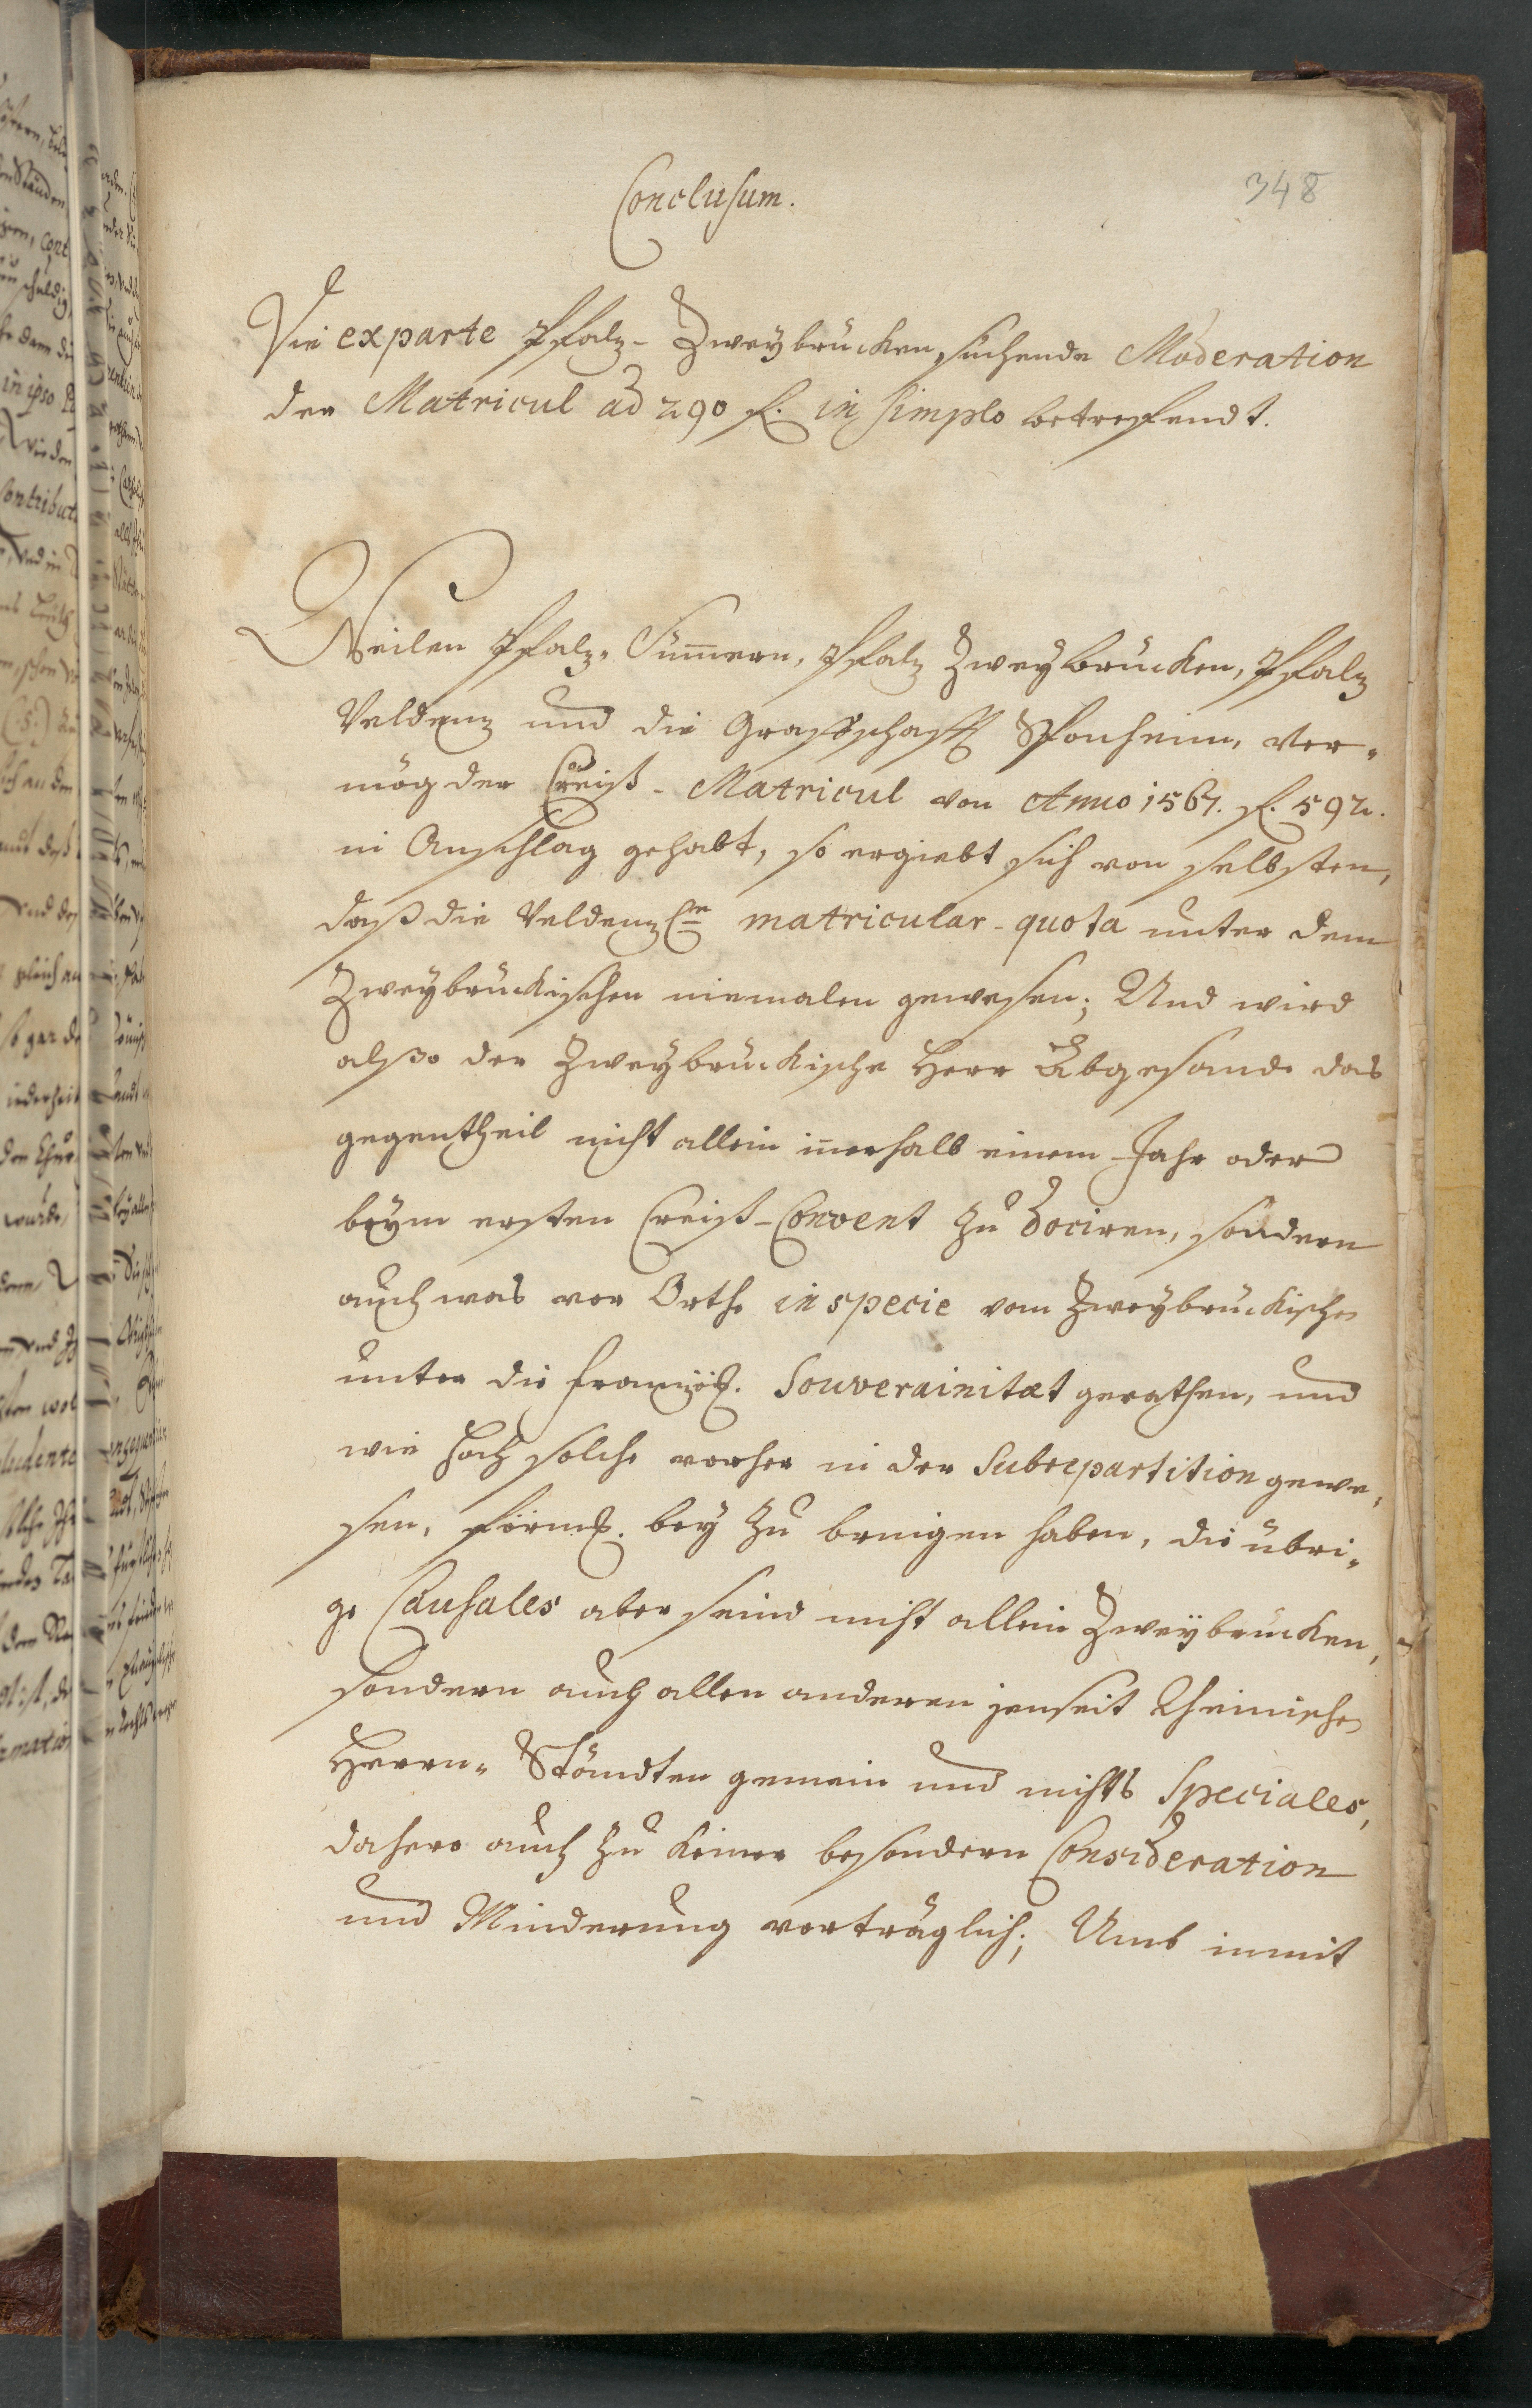 348
Conclusum.
Die ex parte Pfalz-Zweybrucken suchende Moderation
der Matricul ad 290 f. in simplo betreffendt.
Weilen Pfalz-Sim̄ern, Pfalz Zweybrucken, Pfalz
Veldenz und die Graffschafft Sponheim, ver-
mög der Creiß-Matricul von Anno 1567. f. 592.
in Anschlag gehabt, so ergiebt sich von selbsten,
daß die Veldenz matricular-quota unter dem
Zweybruckischen niemalen gewesen; Und wird
alßo der Zweybruckische Herr Abgesande das
gegentheil nicht allein iñerhalb einem Jahr oder
beym ersten Creiß-Convent zu dociren, sondern
auch was vor Orthe in specie vom Zweybruckischen
unter die französ. Souverainitæt gerathen, und
wie hoch solche vorher in der Subrepartition gewe-
sen, förml. bey zu bringen haben, die übri-
ge Causales aber seind nicht allein Zweybrucken,
sondern auch allen anderen jenseit Rheinischen
Herrn-Ständten gemein und nichts Speciales,
dahero auch zu keiner besondern Consideration
und Minderung vorträglich; Umb inmit